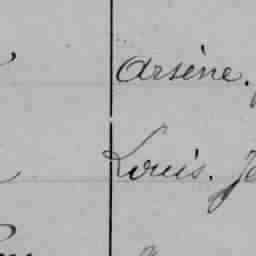 Arsène.
Louis.